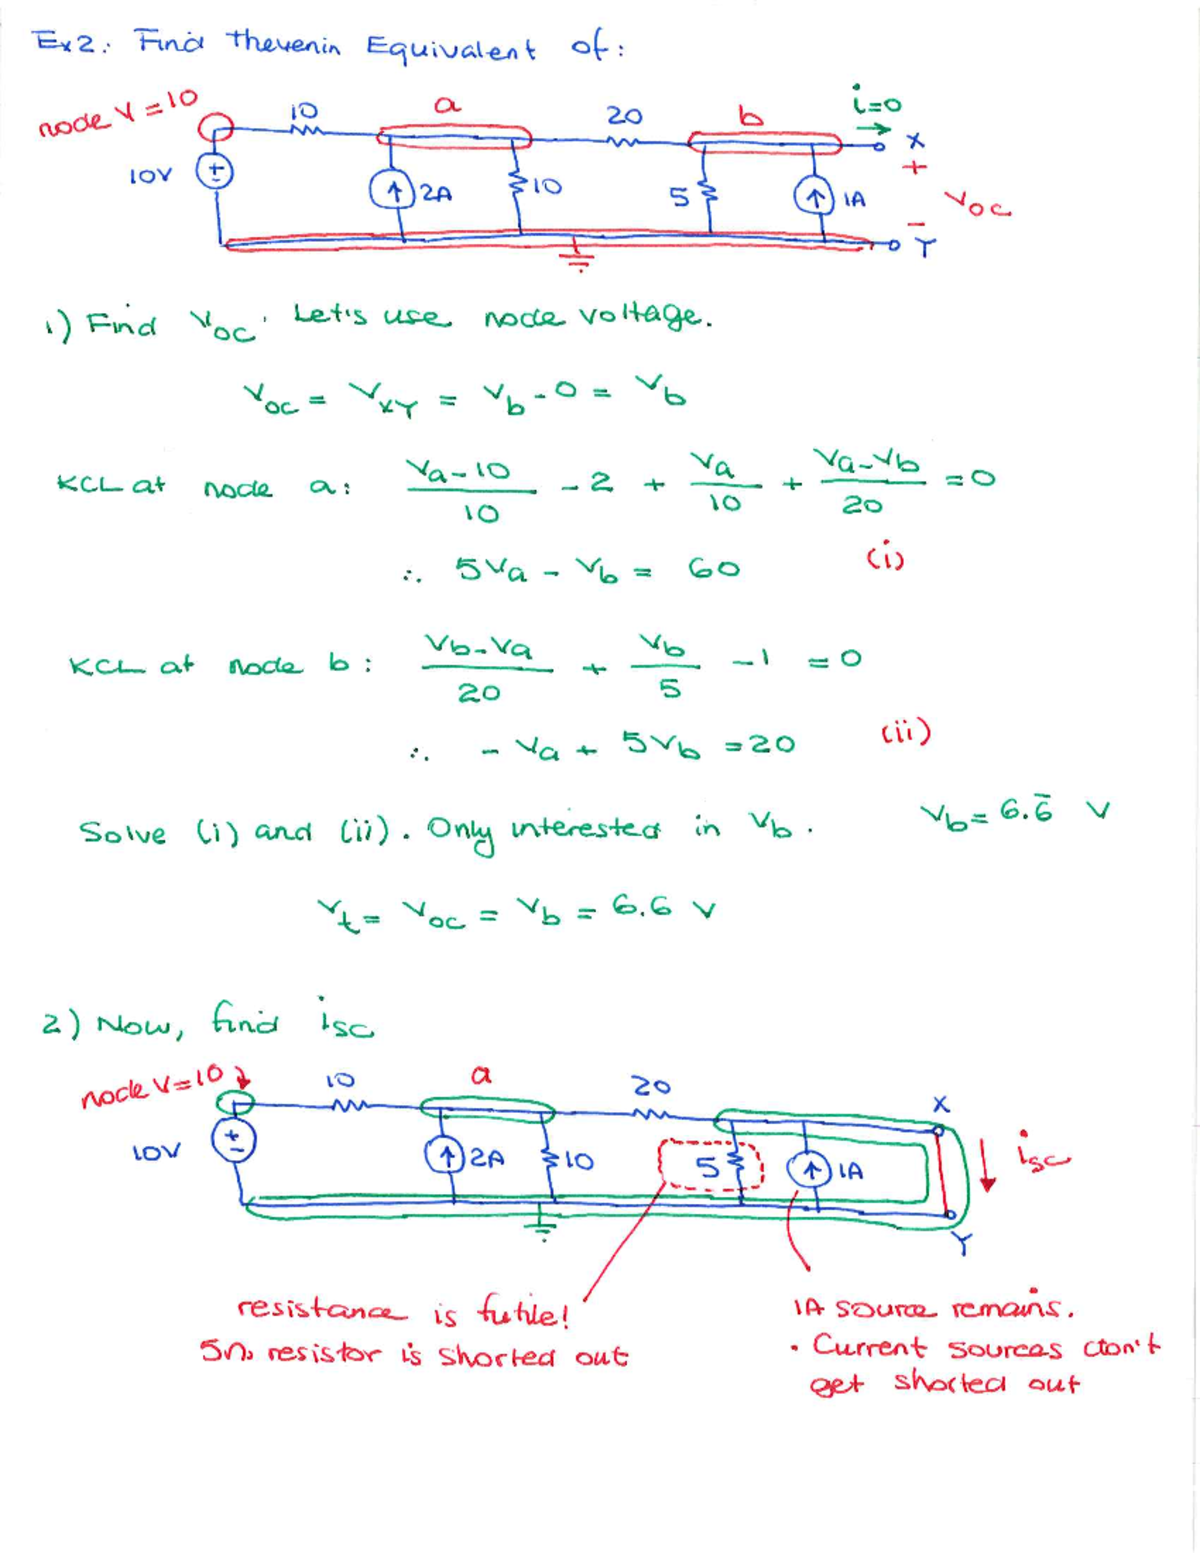 Ex2: Find Thevenin Equivalent of:
node V=10
10
a
20
b
i=0
X
+
10V
+
-
2A
10
5
1A
Voc
-
Y
1) Find Voc. Let's use node voltage.
Voc = VXY = Vb - 0 = Vb
KCL at node a: (Va-10)/10 - 2 + Va/10 + (Va-Vb)/20 = 0
∴ 5Va - Vb = 60 (i)
KCL at node b: (Vb-Va)/20 + Vb/5 - 1 = 0
∴ - Va + 5Vb = 20 (ii)
Solve (i) and (ii). Only interested in Vb. Vb = 6.6̅ V
Vt = Voc = Vb = 6.6 V
2) Now, find isc
node V=10
10
a
20
X
10V
+
-
2A
10
5
1A
isc
Y
resistance is futile!
5Ω resistor is shorted out
1A source remains.
• Current sources don't
get shorted out